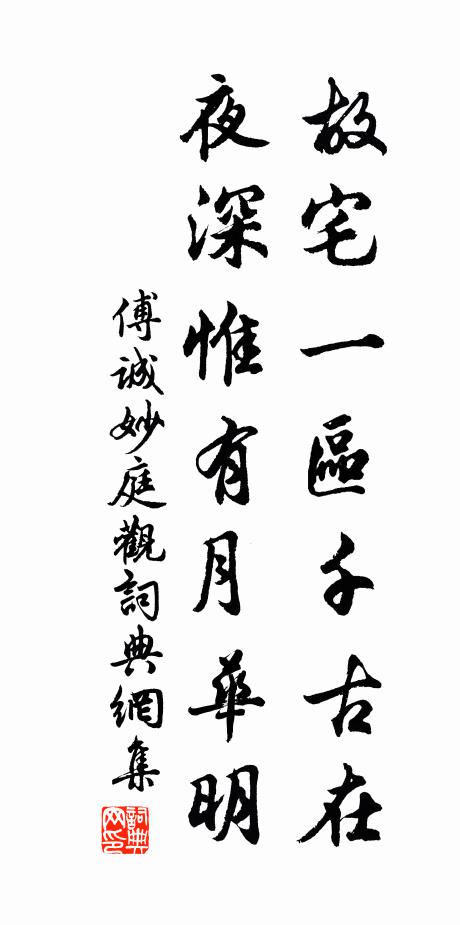 故宅一區千古在
夜深惟有月華明
傅誠妙庭觀詞典網集
詞典网印